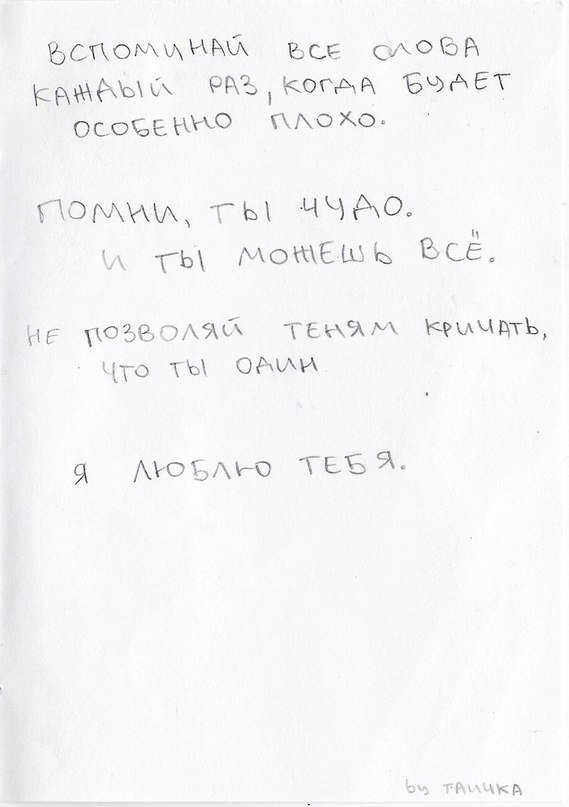 ВСПОМИНАЙ ВСЕ СЛОВА
КАЖДЫЙ РАЗ, КОГДА БУДЕТ
ОСОБЕННО ПЛОХО.
ПОМНИ, ТЫ ЧУДО.
И ТЫ МОЖЕШЬ ВСЁ.
НЕ ПОЗВОЛЯЙ ТЕНЯМ КРИЧАТЬ,
ЧТО ТЫ ОДИН
Я ЛЮБЛЮ ТЕБЯ.
by ТАИЧКА